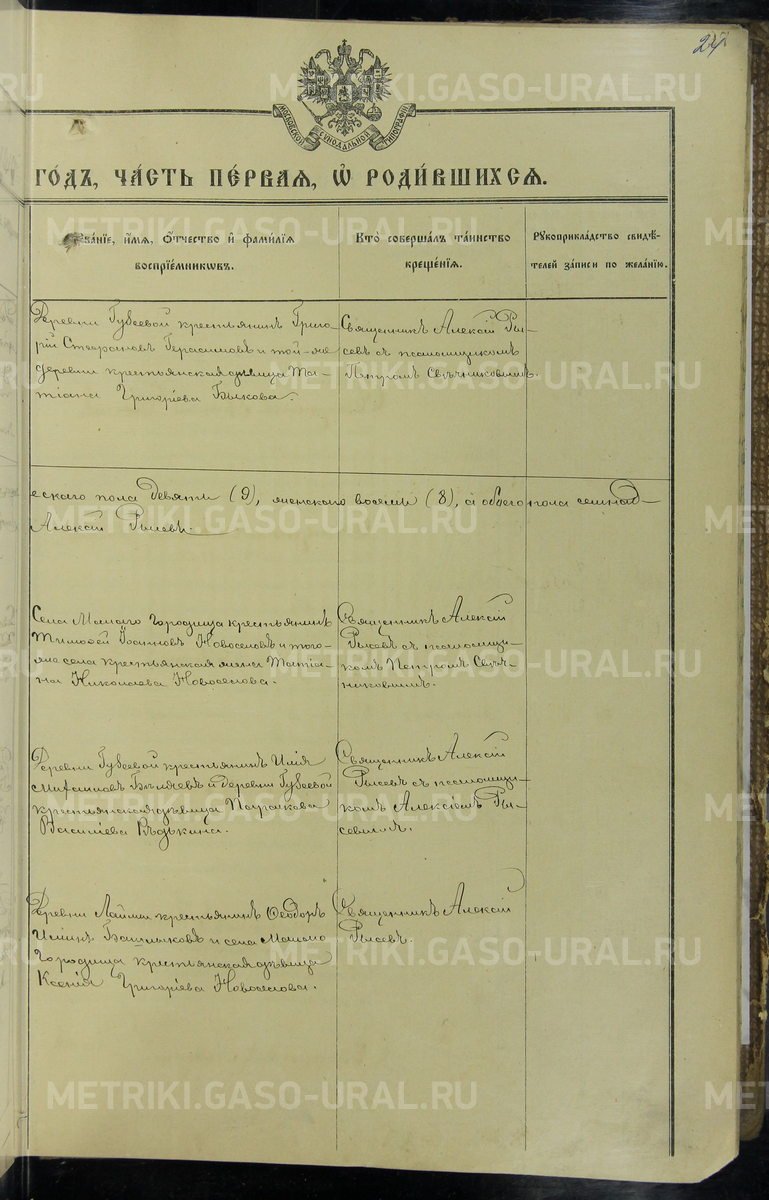 24
МОСКОВСКОЙ СѴНОДАЛЬНОЙ ТИПОГРАФІИ
ГО́ДЪ, ЧА́СТЬ ПЕ́РВАЯ, Ѡ҆ РОДИ́ВШИХСЯ.
Зва́нїе, и҆́мя, ѻ҆́тчество и҆ фами́лїя
воспрїе́мниковъ.
Кто̀ соверша́лъ та́инство
креще́нїя.
Рукоприкла́дство свидѣ́-
телей за́писи по жела́нїю.
Деревни Губеевой крестьянинъ Григо-
рій Стефановъ Герасимовъ и той-же
деревни крестьянская дѣвица Та-
тіана Григоріева Быкова.
Священникъ Алексій Ры-
севъ съ псаломщикомъ
Петромъ Свѣчниковымъ.
ескаго пола девять (9), женскаго восемь (8), а обоего пола семнад-
Алексій Рысевъ.
Села Малаго Городища крестьянинъ
Тимоѳей Іоанновъ Новоселовъ и того-
же села крестьянская жена Татіа-
на Николаева Новоселова.
Священникъ Алексій
Рысевъ съ псаломщи-
комъ Петромъ Свѣч-
никовымъ.
Деревни Губеевой крестьянинъ Илія
Михаиловъ Бѣляевъ и деревни Губеевой
крестьянская дѣвица Параскева
Василіева Рѣдькина.
Священникъ Алексій
Рысевъ съ псаломщи-
комъ Алексіемъ Ры-
севымъ.
Деревни крестьянинъ Ѳеодоръ
Иліинъ Башлыковъ и села Малаго
Городища крестьянская дѣвица
Ксенія Григоріева Новоселова.
Священникъ Алексій
Рысевъ.
METRIKI.GASO-URAL.RU